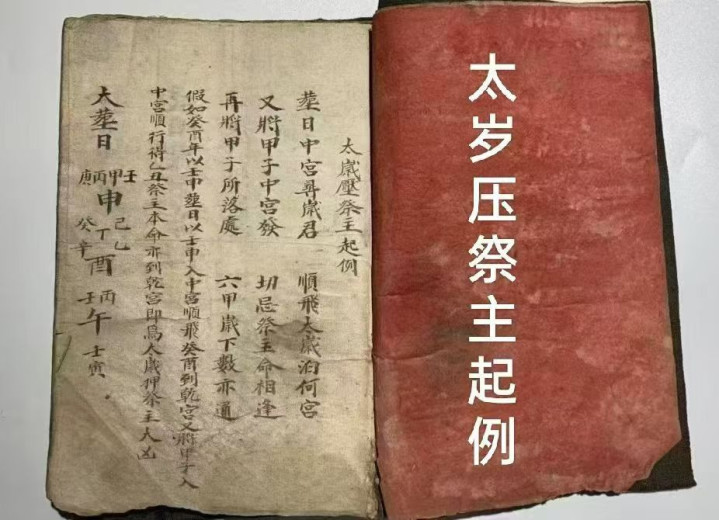 太岁压祭主起例
太歲壓祭主起例
葬日中宮尋歲君 順飛太歲泊何宮
又將甲子中宮發 切忌祭主命相逢
再將甲子所落處 六甲歲下數亦通
假如癸酉年以壬申葬日以壬申入中宮順飛癸酉到乾宮又將甲子入
中宮順行得乙丑祭主本命亦到乾宮即為太歲押祭主大凶
大葬日
庚丙甲壬
申
己乙丁
癸辛
酉
壬丙
午
壬寅